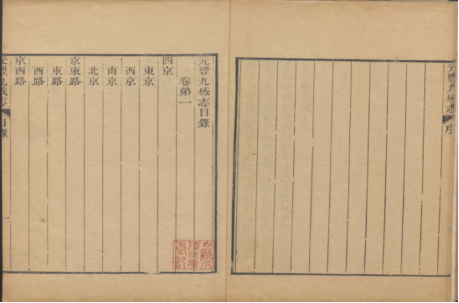 元豐九域志 序
元豐九域志目錄
卷第一
四京
東京
西京
南京
北京
京東路
東路
西路
京西路
元豐九域志 目錄